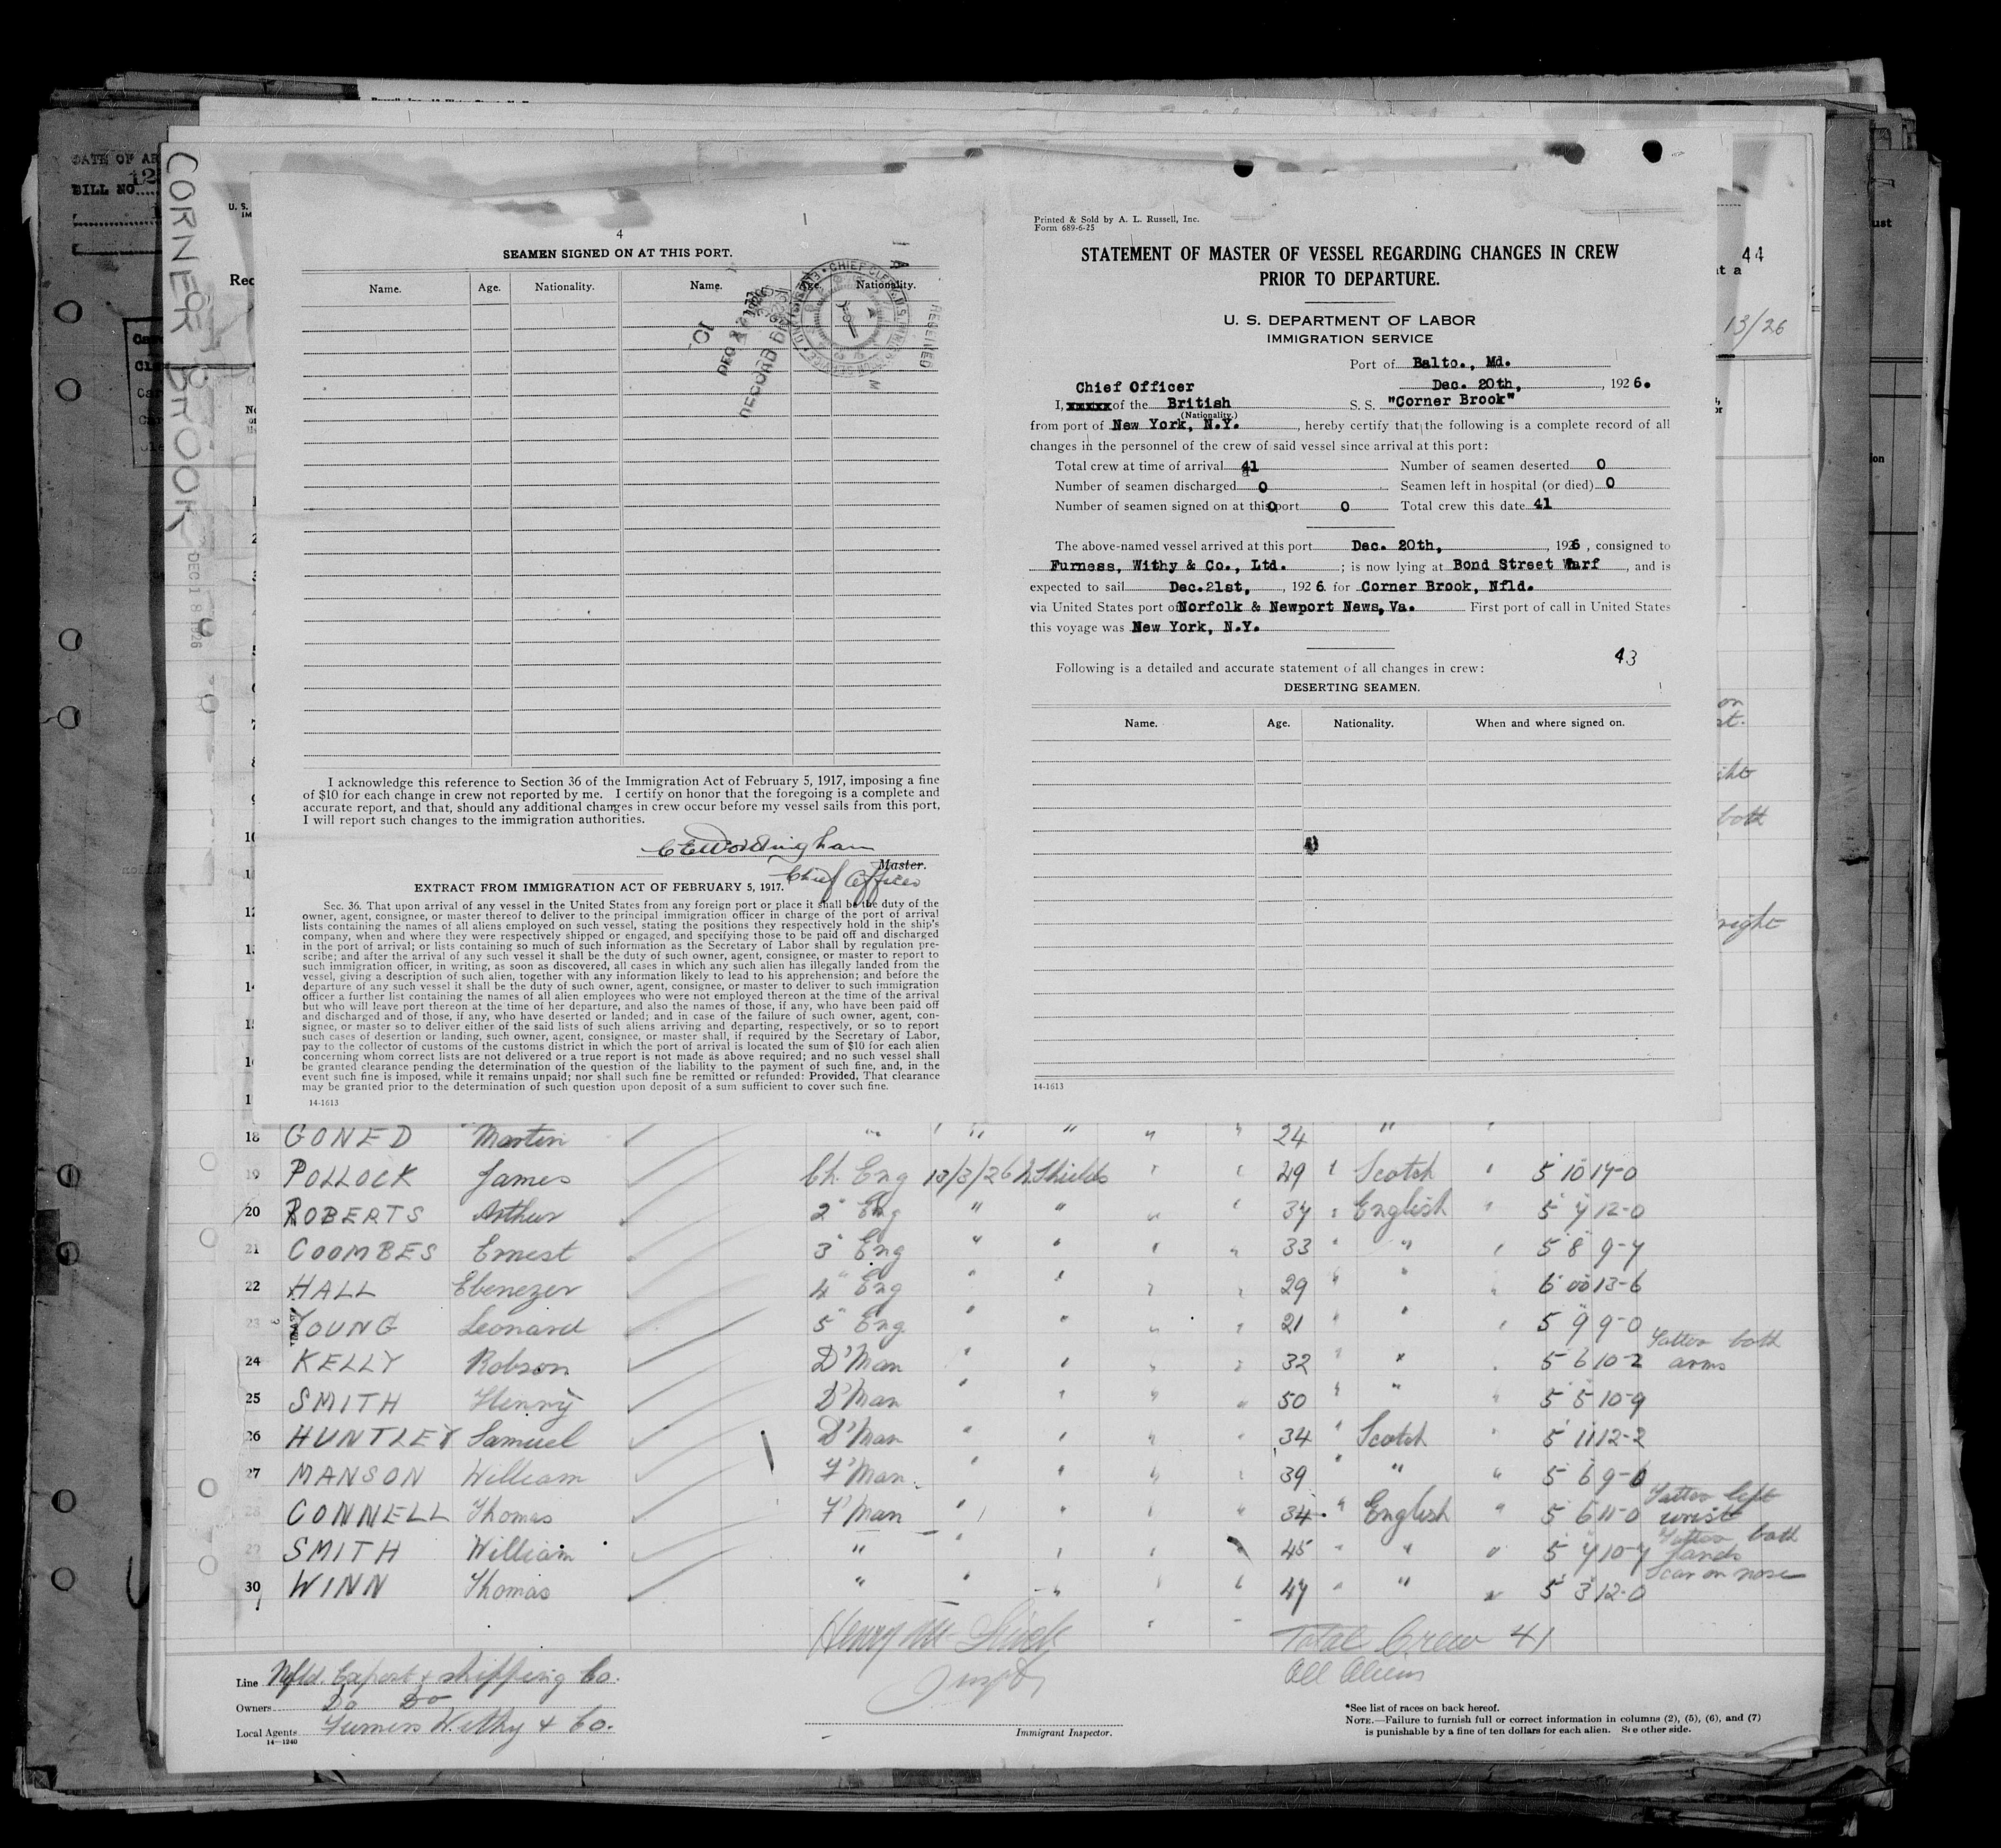 DATE OF AR
BILL NO. 12
CORNER BROOK
DEC 18 1926
U. S.
IM
Rec
4
SEAMEN SIGNED ON AT THIS PORT.
Name. Age. Nationality. Name. Age. Nationality.
RECEIVED
RECORD DIV
I acknowledge this reference to Section 36 of the Immigration Act of February 5, 1917, imposing a fine
of $10 for each change in crew not reported by me. I certify on honor that the foregoing is a complete and
accurate report, and that, should any additional changes in crew occur before my vessel sails from this port,
I will report such changes to the immigration authorities.
Master.
Chief Officer
EXTRACT FROM IMMIGRATION ACT OF FEBRUARY 5, 1917.
Sec. 36. That upon arrival of any vessel in the United States from any foreign port or place it shall be the duty of the
owner, agent, consignee, or master thereof to deliver to the principal immigration officer in charge of the port of arrival
lists containing the names of all aliens employed on such vessel, stating the positions they respectively hold in the ship's
company, when and where they were respectively shipped or engaged, and specifying those to be paid off and discharged
in the port of arrival; or lists containing so much of such information as the Secretary of Labor shall by regulation pre-
scribe; and after the arrival of any such vessel it shall be the duty of such owner, agent, consignee, or master to report to
such immigration officer, in writing, as soon as discovered, all cases in which any such alien has illegally landed from the
vessel, giving a description of such alien, together with any information likely to lead to his apprehension; and before the
departure of any such vessel it shall be the duty of such owner, agent, consignee, or master to deliver to such immigration
officer a further list containing the names of all alien employees who were not employed thereon at the time of the arrival
but who will leave port thereon at the time of her departure, and also the names of those, if any, who have been paid off
and discharged and of those, if any, who have deserted or landed; and in case of the failure of such owner, agent, con-
signee, or master so to deliver either of the said lists of such aliens arriving and departing, respectively, or so to report
such cases of desertion or landing, such owner, agent, consignee, or master shall, if required by the Secretary of Labor,
pay to the collector of customs of the customs district in which the port of arrival is located the sum of $10 for each alien
concerning whom correct lists are not delivered or a true report is not made as above required; and no such vessel shall
be granted clearance pending the determination of the question of the liability to the payment of such fine, and, in the
event such fine is imposed, while it remains unpaid; nor shall such fine be remitted or refunded: Provided, That clearance
may be granted prior to the determination of such question upon deposit of a sum sufficient to cover such fine.
14-1613
Printed & Sold by A. L. Russell, Inc.
Form 689-6-25
STATEMENT OF MASTER OF VESSEL REGARDING CHANGES IN CREW
PRIOR TO DEPARTURE.
U. S. DEPARTMENT OF LABOR
IMMIGRATION SERVICE
Port of Balto., Md.
Dec. 20th, , 1926.
Chief Officer
I, xxxxx of the British S. S. "Corner Brook"
(Nationality.)
from port of New York, N.Y. , hereby certify that the following is a complete record of all
changes in the personnel of the crew of said vessel since arrival at this port:
Total crew at time of arrival 41 Number of seamen deserted 0
Number of seamen discharged 0 Seamen left in hospital (or died) 0
Number of seamen signed on at this port 0 0 Total crew this date 41
The above-named vessel arrived at this port Dec. 20th, , 1926 , consigned to
Furness, Withy & Co., Ltd. ; is now lying at Bond Street Wharf , and is
expected to sail Dec.21st, , 1926 for Corner Brook, Nfld.
via United States port of Norfolk & Newport News, Va. First port of call in United States
this voyage was New York, N.Y.
43
Following is a detailed and accurate statement of all changes in crew:
DESERTING SEAMEN.
Name. Age. Nationality. When and where signed on.
14-1613
44
13/26
both
right
18 GONED Martin " " " " " " 24 "
19 POLLOCK James Ch. Eng 13/3/26 N. Shields " " 49 " Scotch " 5 10 14-0
20 ROBERTS Arthur 2" Eng " " " " 34 " English " 5 7 12-0
21 COOMBES Ernest 3" Eng " " " " 33 " " " 5 8 9-7
22 HALL Ebenezer 4" Eng " " " " 29 " " " 6 00 13-6
23 YOUNG Leonard 5" Eng " " " " 21 " " " 5 9 9-0
24 KELLY Robson D'Man " " " " 32 " " " 5 6 10-2 Tattoo both arms
25 SMITH Henry D'Man " " " " 50 " " " 5 5 10-9
26 HUNTLEY Samuel D'Man " " " " 34 " Scotch " 5 11 12-2
27 MANSON William F'Man " " " " 39 " " " 5 6 9-6
28 CONNELL Thomas F'Man " " " " 34 " English " 5 6 11-0 Tattoo left wrist
29 SMITH William " " " " " 45 " " " 5 7 10-7 Tattoo both hands
30 WINN Thomas " " " " " 47 " " " 5 3 12-0 Scar on nose
Total Crew 41
All Aliens
Line Nfld. Export & Shipping Co.
Owners Do Do
Local Agents Furness Withy & Co.
14-1240
Immigrant Inspector.
*See list of races on back hereof.
NOTE.—Failure to furnish full or correct information in columns (2), (5), (6), and (7)
is punishable by a fine of ten dollars for each alien. See other side.